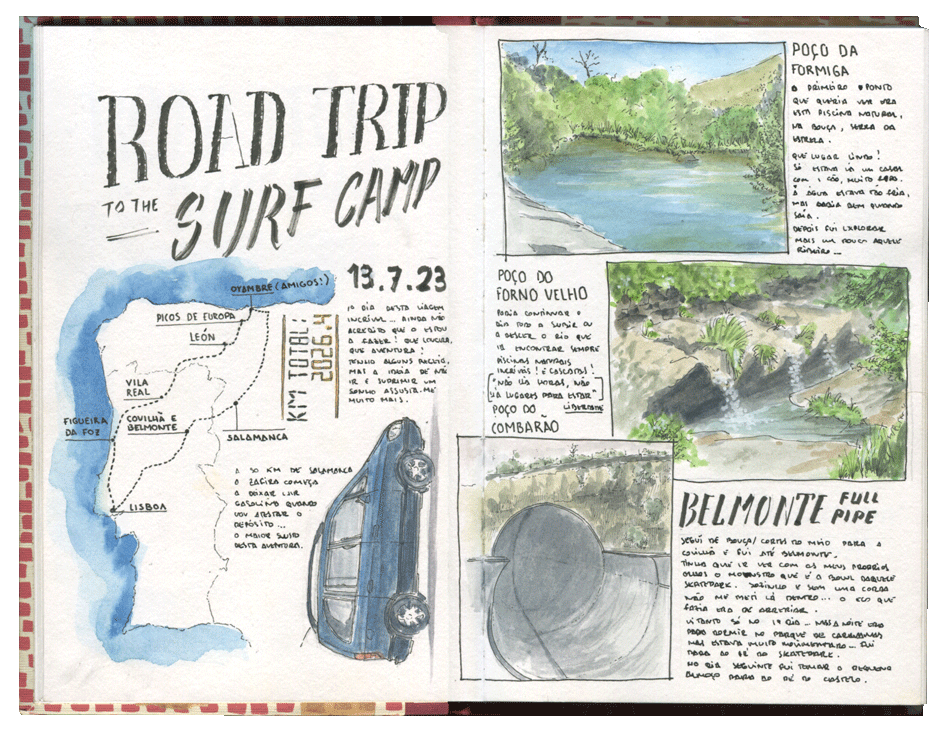 ROAD TRIP
TO THE
SURF CAMP
OYAMBRE (AMIGOS!)
PICOS DE EUROPA
LEÓN
VILA
REAL
FIGUEIRA
DA FOZ
COVILHÃ E
BELMONTE
SALAMANCA
LISBOA
KM TOTAL:
2026.4
13.7.23
1º DIA DESTA VIAGEM
INCRÍVEL... AINDA NÃO
ACREDITO QUE O ESTOU
A FAZER! QUE LOUCURA,
QUE AVENTURA!
TENHO ALGUNS RECEIOS,
MAS A IDEIA DE NÃO
IR E SUPRIMIR UM
SONHO ASSUSTA-ME
MUITO MAIS.
A 50 KM DE SALAMANCA
A ZAFIRA COMEÇA
A DEIXAR CAIR
GASOLINA QUANDO
VOU ATESTAR O
DEPÓSITO...
O MAIOR SUSTO
DESTA AVENTURA.
POÇO DA
FORMIGA
O PRIMEIRO PONTO
QUE QUERIA VER ERA
ESTA PISCINA NATURAL,
NA BOUÇA, SERRA DA
ESTRELA.
QUE LUGAR LINDO!
SÓ ESTAVA LÁ UM CASAL
COM 1 CÃO, MUITO
A ÁGUA ESTAVA TÃO FRIA,
MAS SABIA BEM QUANDO
SAÍA.
DEPOIS FUI EXPLORAR
MAIS UM POUCO AQUELE
RIBEIRO...
POÇO DO
FORNO VELHO
PODIA CONTINUAR O
DIA TODO A SUBIR OU
A DESCER O RIO QUE
IR ENCONTRAR SEMPRE
PISCINAS NATURAIS
INCRÍVEIS! E CASCATAS!
"NÃO HÁ HORAS, NÃO
HÁ LUGARES PARA ESTAR"
LIBERDADE
POÇO DO
COMBARÃO
BELMONTE FULL
PIPE
SEGUI DE BOUÇA/CORTES DO MEIO PARA A
COVILHÃ E FUI ATÉ BELMONTE.
TINHA QUE IR VER COM OS MEUS PRÓPRIOS
OLHOS O MONSTRO QUE É A BOWL DAQUELE
SKATEPARK. SOZINHO E SEM UMA CORDA
NÃO ME METI LÁ DENTRO... O ECO QUE
FAZIA ERA DE ARREPIAR.
TANTO SÓ NO 1º DIA... MAS A NOITE ERA
PARA DORMIR NO PARQUE DE CARAVANAS
MAS ESTAVA MUITO MOVIMENTADO... FUI
PARA AO PÉ DO SKATEPARK.
NO DIA SEGUINTE FUI TOMAR O PEQUENO
ALMOÇO PARA AO PÉ DO CASTELO.